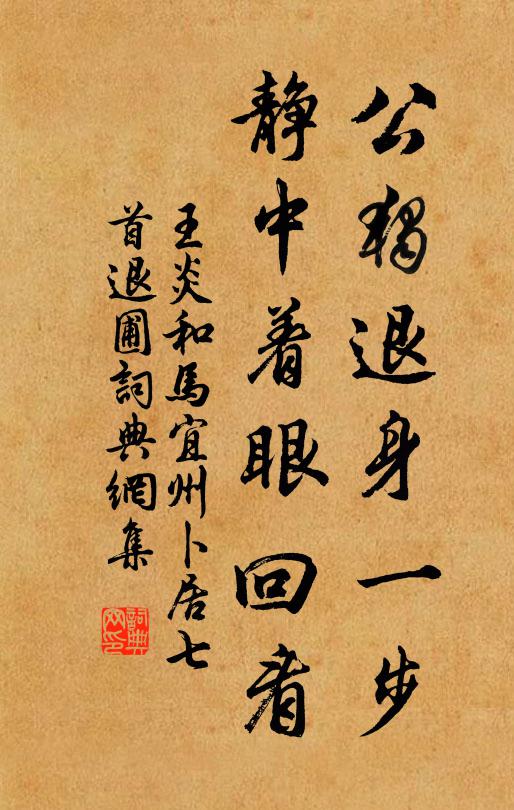 公獨退身一步
静中着眼回看
王炎和馬宜州卜居七
首退圃詞典網集
詞典
网印